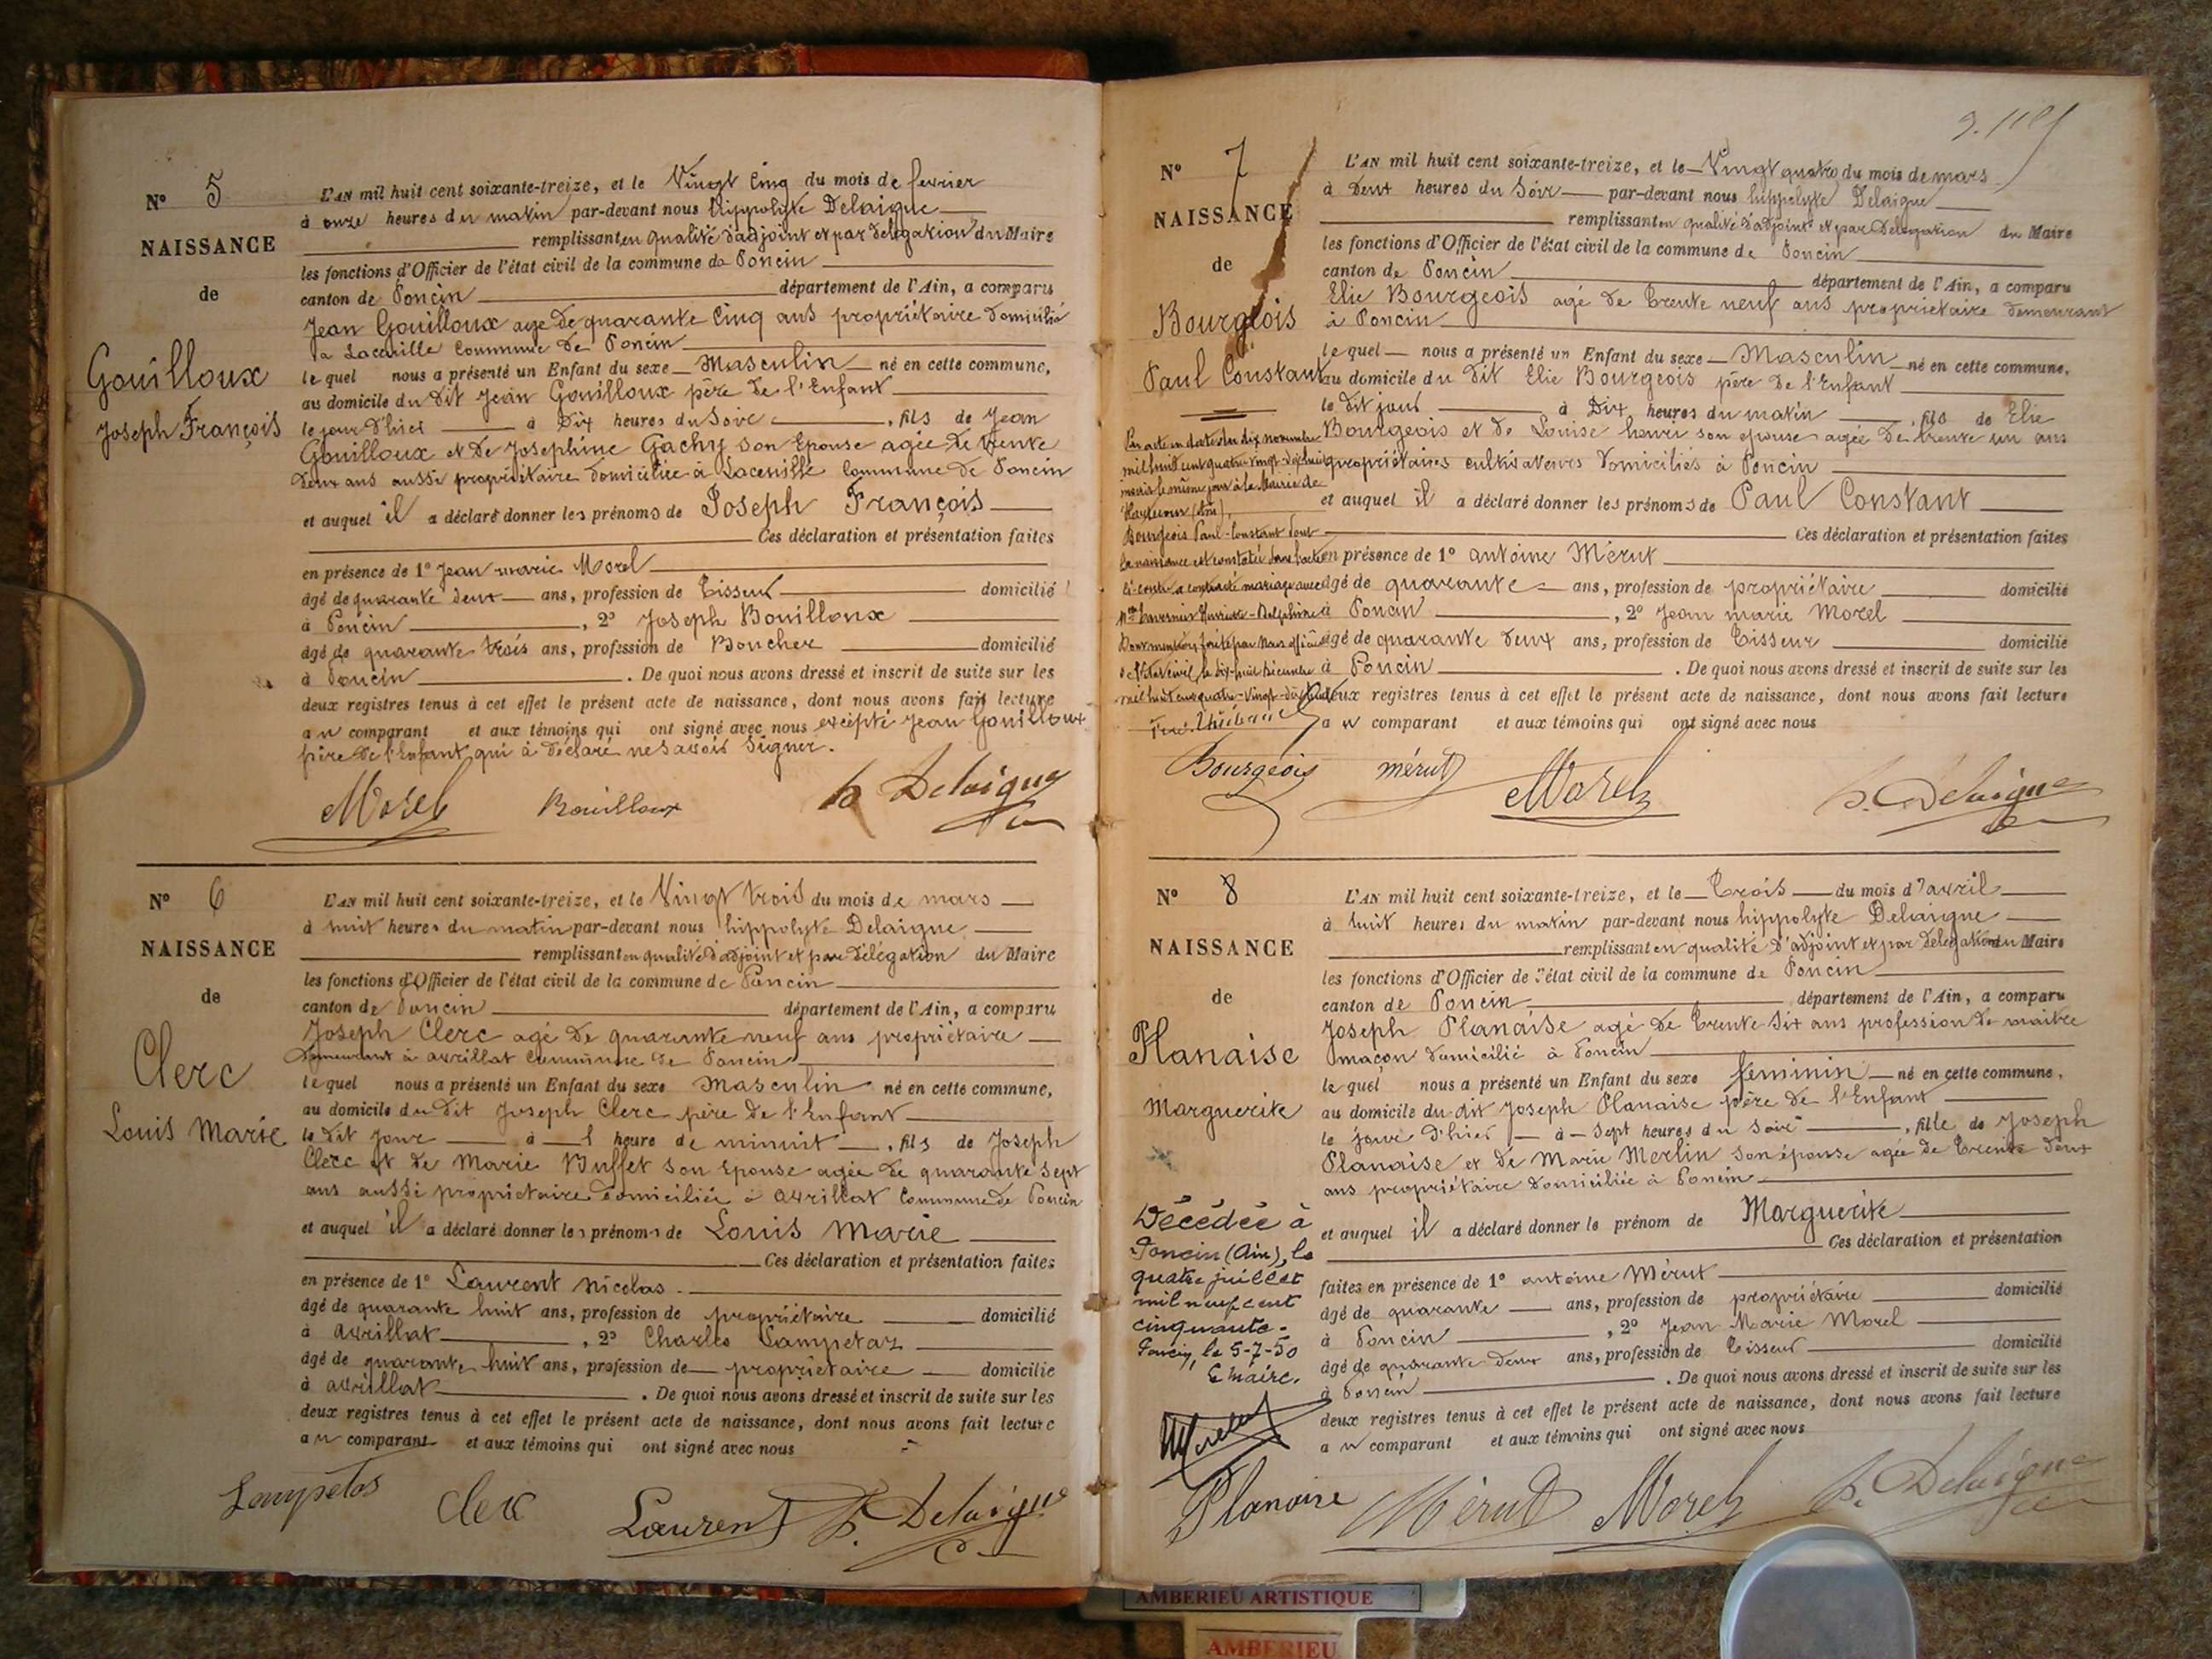 N° 5
NAISSANCE
de
Gouilloux
Joseph François
L'AN mil huit cent soixante-treize, et le Vingt Cinq du mois de fevrier
à onze heures du matin par-devant nous hippolyte Delaigue
remplissant en qualité d'adjoint et par délégation du Maire
les fonctions d'Officier de l'état civil de la commune de Poncin
canton de Poncin département de l'Ain, a comparu
Jean Gouilloux agé de quarante Cinq ans propriétaire domicilié
à Commune de Poncin
lequel nous a présenté un Enfant du sexe Masculin né en cette commune,
au domicile du dit Jean Gouilloux père de l'Enfant
le jour d'hier à Dix heures du Soir, fils de Jean
Gouilloux et de Josephine Gachy son Epouse agée de trente
deux ans aussi propriétaire domiciliée à Commune de Poncin
et auquel il a déclaré donner les prénoms de Joseph François
Ces déclaration et présentation faites
en présence de 1° Jean marie Morel
âgé de quarante deux ans, profession de Tisseur domicilié
à Poncin, 2° Joseph Bouilloux
âgé de quarante trois ans, profession de Boucher domicilié
à Poncin. De quoi nous avons dressé et inscrit de suite sur les
deux registres tenus à cet effet le présent acte de naissance, dont nous avons fait lecture
au comparant et aux témoins qui ont signé avec nous excepté Jean Gouilloux
père de l'Enfant qui à déclaré ne savoir Signer.
Morel Bouilloux h Delaigue
N° 6
NAISSANCE
de
Clerc
Louis Marie
L'AN mil huit cent soixante-treize, et le Vingt trois du mois de mars
à huit heures du matin par-devant nous hippolyte Delaigue
remplissant en qualité d'adjoint et par délégation du Maire
les fonctions d'Officier de l'état civil de la commune de Poncin
canton de Poncin département de l'Ain, a comparu
Joseph Clerc agé de quarante neuf ans propriétaire
demeurant à avrillat Commune de Poncin
lequel nous a présenté un Enfant du sexe Masculin né en cette commune,
au domicile du dit Joseph Clerc père de l'Enfant
le dit jour à 1 heure de minuit, fils de Joseph
Clerc et de Marie Buffet son Epouse agée de quarante sept
ans aussi propriétaire domiciliée à avrillat Commune de Poncin
et auquel il a déclaré donner les prénoms de Louis Marie
Ces déclaration et présentation faites
en présence de 1° Laurent Nicolas
âgé de quarante huit ans, profession de propriétaire domicilié
à avrillat, 2° Charles Lampetaz
âgé de quarante huit ans, profession de propriétaire domicilié
à avrillat. De quoi nous avons dressé et inscrit de suite sur les
deux registres tenus à cet effet le présent acte de naissance, dont nous avons fait lecture
au comparant et aux témoins qui ont signé avec nous
Clerc Laurent h. Delaigue
N° 7
NAISSANCE
de
Bourgeois
Paul Constant
L'AN mil huit cent soixante-treize, et le Vingt quatre du mois de mars
à Deux heures du Soir par-devant nous hippolyte Delaigue
remplissant en qualité d'adjoint et par délégation du Maire
les fonctions d'Officier de l'état civil de la commune de Poncin
canton de Poncin département de l'Ain, a comparu
Elie Bourgeois agé de trente neuf ans propriétaire demeurant
à Poncin
lequel nous a présenté un Enfant du sexe Masculin né en cette commune,
au domicile du dit Elie Bourgeois père de l'Enfant
le dit jour à Dix heures du matin, fils de Elie
Bourgeois et de Louise henri son epouse agée de trente un ans
propriétaires cultivateurs domiciliés à Poncin
et auquel il a déclaré donner les prénoms de Paul Constant
Ces déclaration et présentation faites
en présence de 1° antoine Mérut
âgé de quarante ans, profession de propriétaire domicilié
à Poncin, 2° Jean marie Morel
âgé de quarante deux ans, profession de Tisseur domicilié
à Poncin. De quoi nous avons dressé et inscrit de suite sur les
deux registres tenus à cet effet le présent acte de naissance, dont nous avons fait lecture
au comparant et aux témoins qui ont signé avec nous
Par acte en date du dix novembre
mil huit cent quatre-vingt-dix huit
inscrit le même jour à la Mairie de
(Ain),
Bourgeois Paul-Constant dont
la naissance est constatée dans l'acte
ci-contre a contracté mariage avec
Dont mention faite par Nous officier
de l'état civil, le dix-huit
mil huit cent quatre-vingt-dix huit
Bourgeois mérut Morel h. Delaigue
N° 8
NAISSANCE
de
Planaise
Marguerite
L'AN mil huit cent soixante-treize, et le Trois du mois d'avril
à huit heures du matin par-devant nous hippolyte Delaigue
remplissant en qualité d'adjoint et par délégation du Maire
les fonctions d'Officier de l'état civil de la commune de Poncin
canton de Poncin département de l'Ain, a comparu
Joseph Planaise agé de Trente Six ans profession de maitre
maçon domicilié à Poncin
lequel nous a présenté un Enfant du sexe féminin né en cette commune,
au domicile du dit Joseph Planaise père de l'Enfant
le jour d'hier à Sept heures du Soir, fille de Joseph
Planaise et de Marie Merlin son épouse agée de Trente deux
ans propriétaire domiciliée à Poncin
et auquel il a déclaré donner le prénom de Marguerite
Ces déclaration et présentation
faites en présence de 1° antoine Mérut
âgé de quarante ans, profession de propriétaire domicilié
à Poncin, 2° Jean Marie Morel
âgé de quarante deux ans, profession de Tisseur domicilié
à Poncin. De quoi nous avons dressé et inscrit de suite sur les
deux registres tenus à cet effet le présent acte de naissance, dont nous avons fait lecture
au comparant et aux témoins qui ont signé avec nous
Décédée à
Poncin (Ain), le
quatre juillet
mil neuf cent
cinquante.
Poncin, le 5-7-50
Le maire,
Planaise Mérut Morel h. Delaigue
AMBERIEU ARTISTIQUE
AMBERIEU